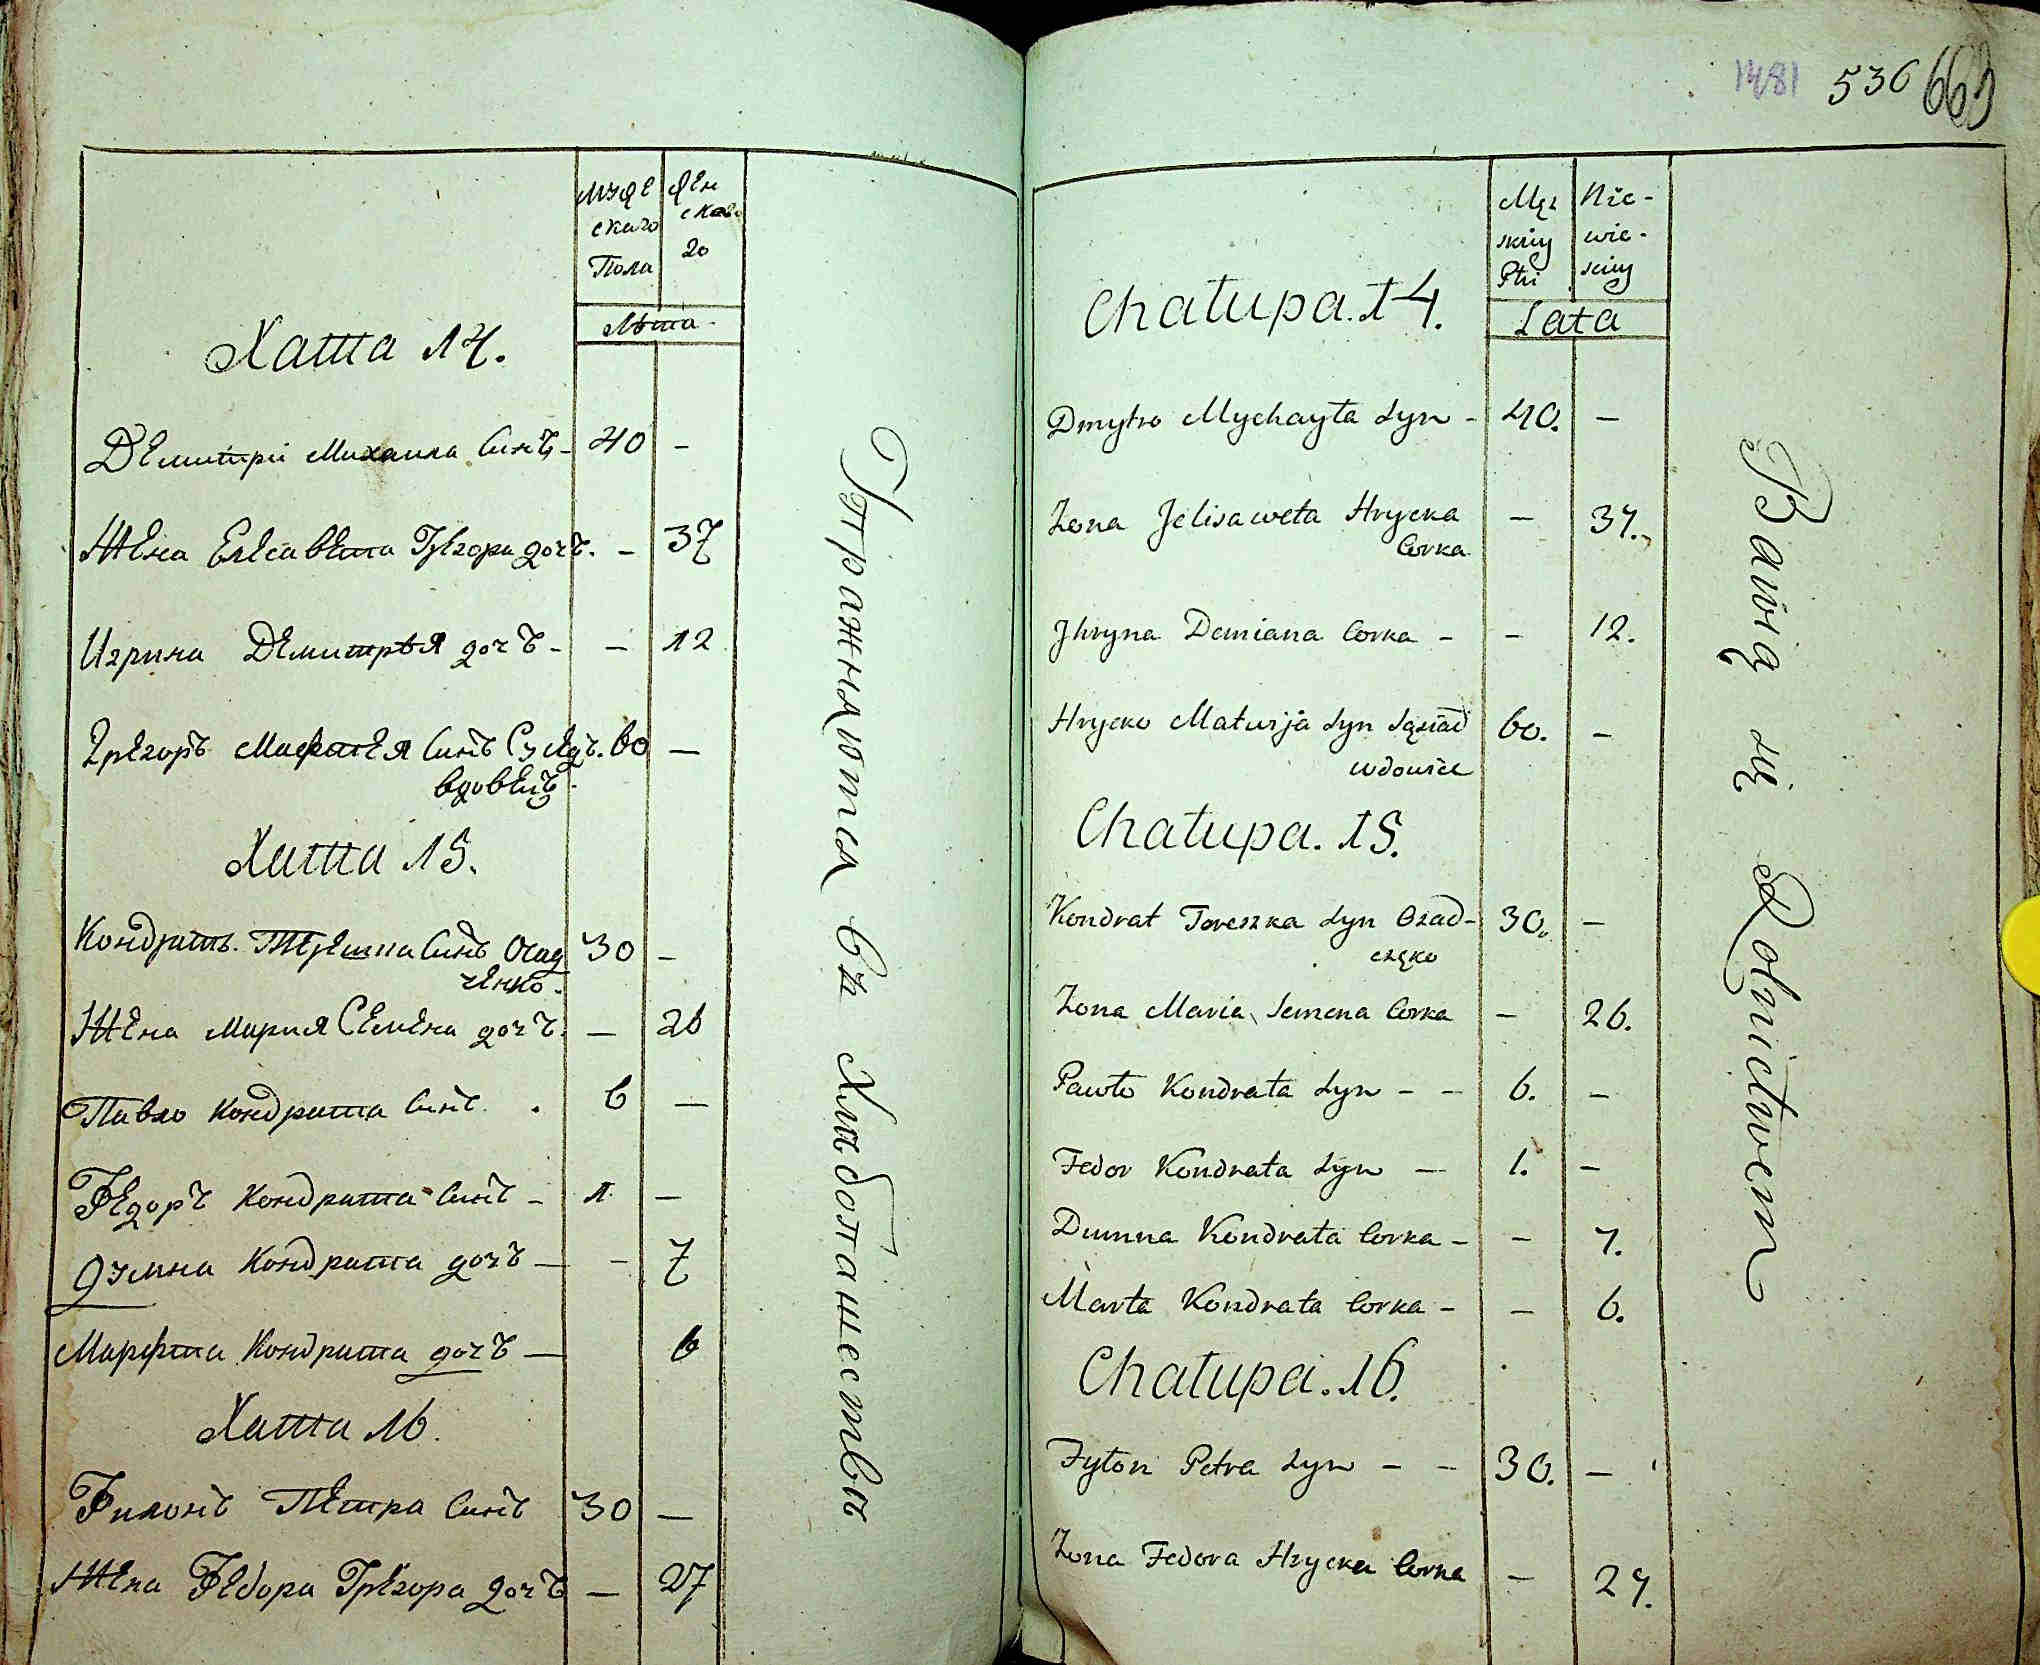 мужескаго
Пола
женскаго
Лѣта
Хата 14.
Демитрiй Михаила Синъ - 40 -
Жена Елесавета Грегора дочъ. - 37
Игрина Деметрѣя дочъ - - 12
Грегоръ Мафтея Синъ Сусѣдъ. 60 -
вдовецъ.
Хата 15.
Кондратъ Терешка Синъ Осад 30 -
ченко.
Жена Мария Семена дочъ. - 26
Павло Кондрата Синъ. 6 -
Федоръ Кондрата Синъ - 1. -
Думна Кондрата дочъ - - 7
Марфта Кондрата дочъ - 6
Хата 16.
Филонъ Петра Синъ 30 -
Жена Федора Грегора дочъ - 27
Упражняются въ Хлѣбопашествѣ
1481 536 663
Męz
skiey
Płci
Nie-
wie-
sciey
Lata
Chałupa. 14.
Dmytro Mychayła Syn - 40. -
Zona Jelisaweta Hrycka - 37.
Corka
Jhryna Demiana Corka - - 12.
Hrycko Matwija Syn Sąsiad 60. -
wdowiec
Chałupa. 15.
Kondrat Tereszka Syn Osad- 30. -
częko
Zona Maria Semena Corka - 26.
Pawło Kondrata Syn - - 6. -
Fedor Kondrata Syn - 1. -
Dumna Kondrata Corka - - 7.
Marta Kondrata Corka - - 6.
Chałupa. 16.
Fyłon Petra Syn - - 30. -
Zona Fedora Hrycka Corka - 27.
Bawią się Rolnictwem